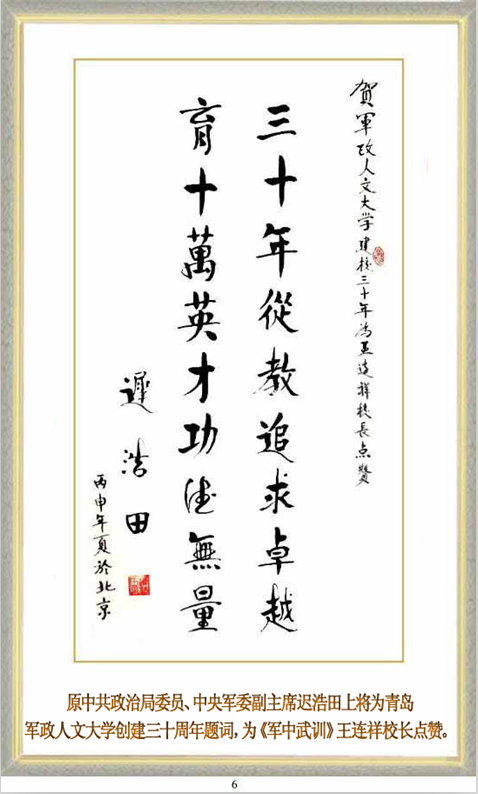 賀軍政人文大学建校三十年为王連祥校長点赞
三十年從教追求卓越
育十萬英才功德無量
遲浩田
丙申年夏於北京
原中共政治局委员、中央军委副主席迟浩田上将为青岛
军政人文大学创建三十周年题词，为《军中武训》王连祥校长点赞。
6